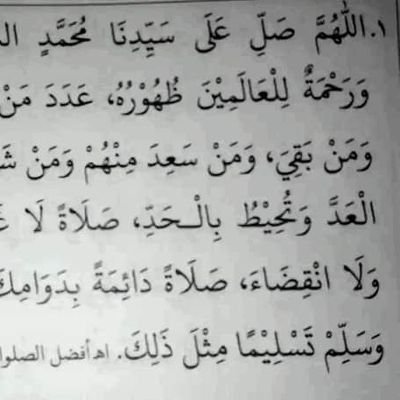 ١. اللّٰهُمَّ صَلِّ عَلَى سَيِّدِنَا مُحَمَّدٍ
وَرَحْمَةٌ لِلْعَالَمِيْنَ ظُهُوْرُهُ، عَدَدَ مَنْ
وَمَنْ بَقِيَ، وَمَنْ سَعِدَ مِنْهُمْ وَمَنْ
الْعَدَّ وَتُحِيْطُ بِالْـحَدِّ، صَلَاةً لَا
وَلَا انْقِضَاءَ، صَلَاةً دَائِمَةً بِدَوَامِكَ
وَسَلِّمْ تَسْلِيْمًا مِثْلَ ذَلِكَ. اهـ أفضل